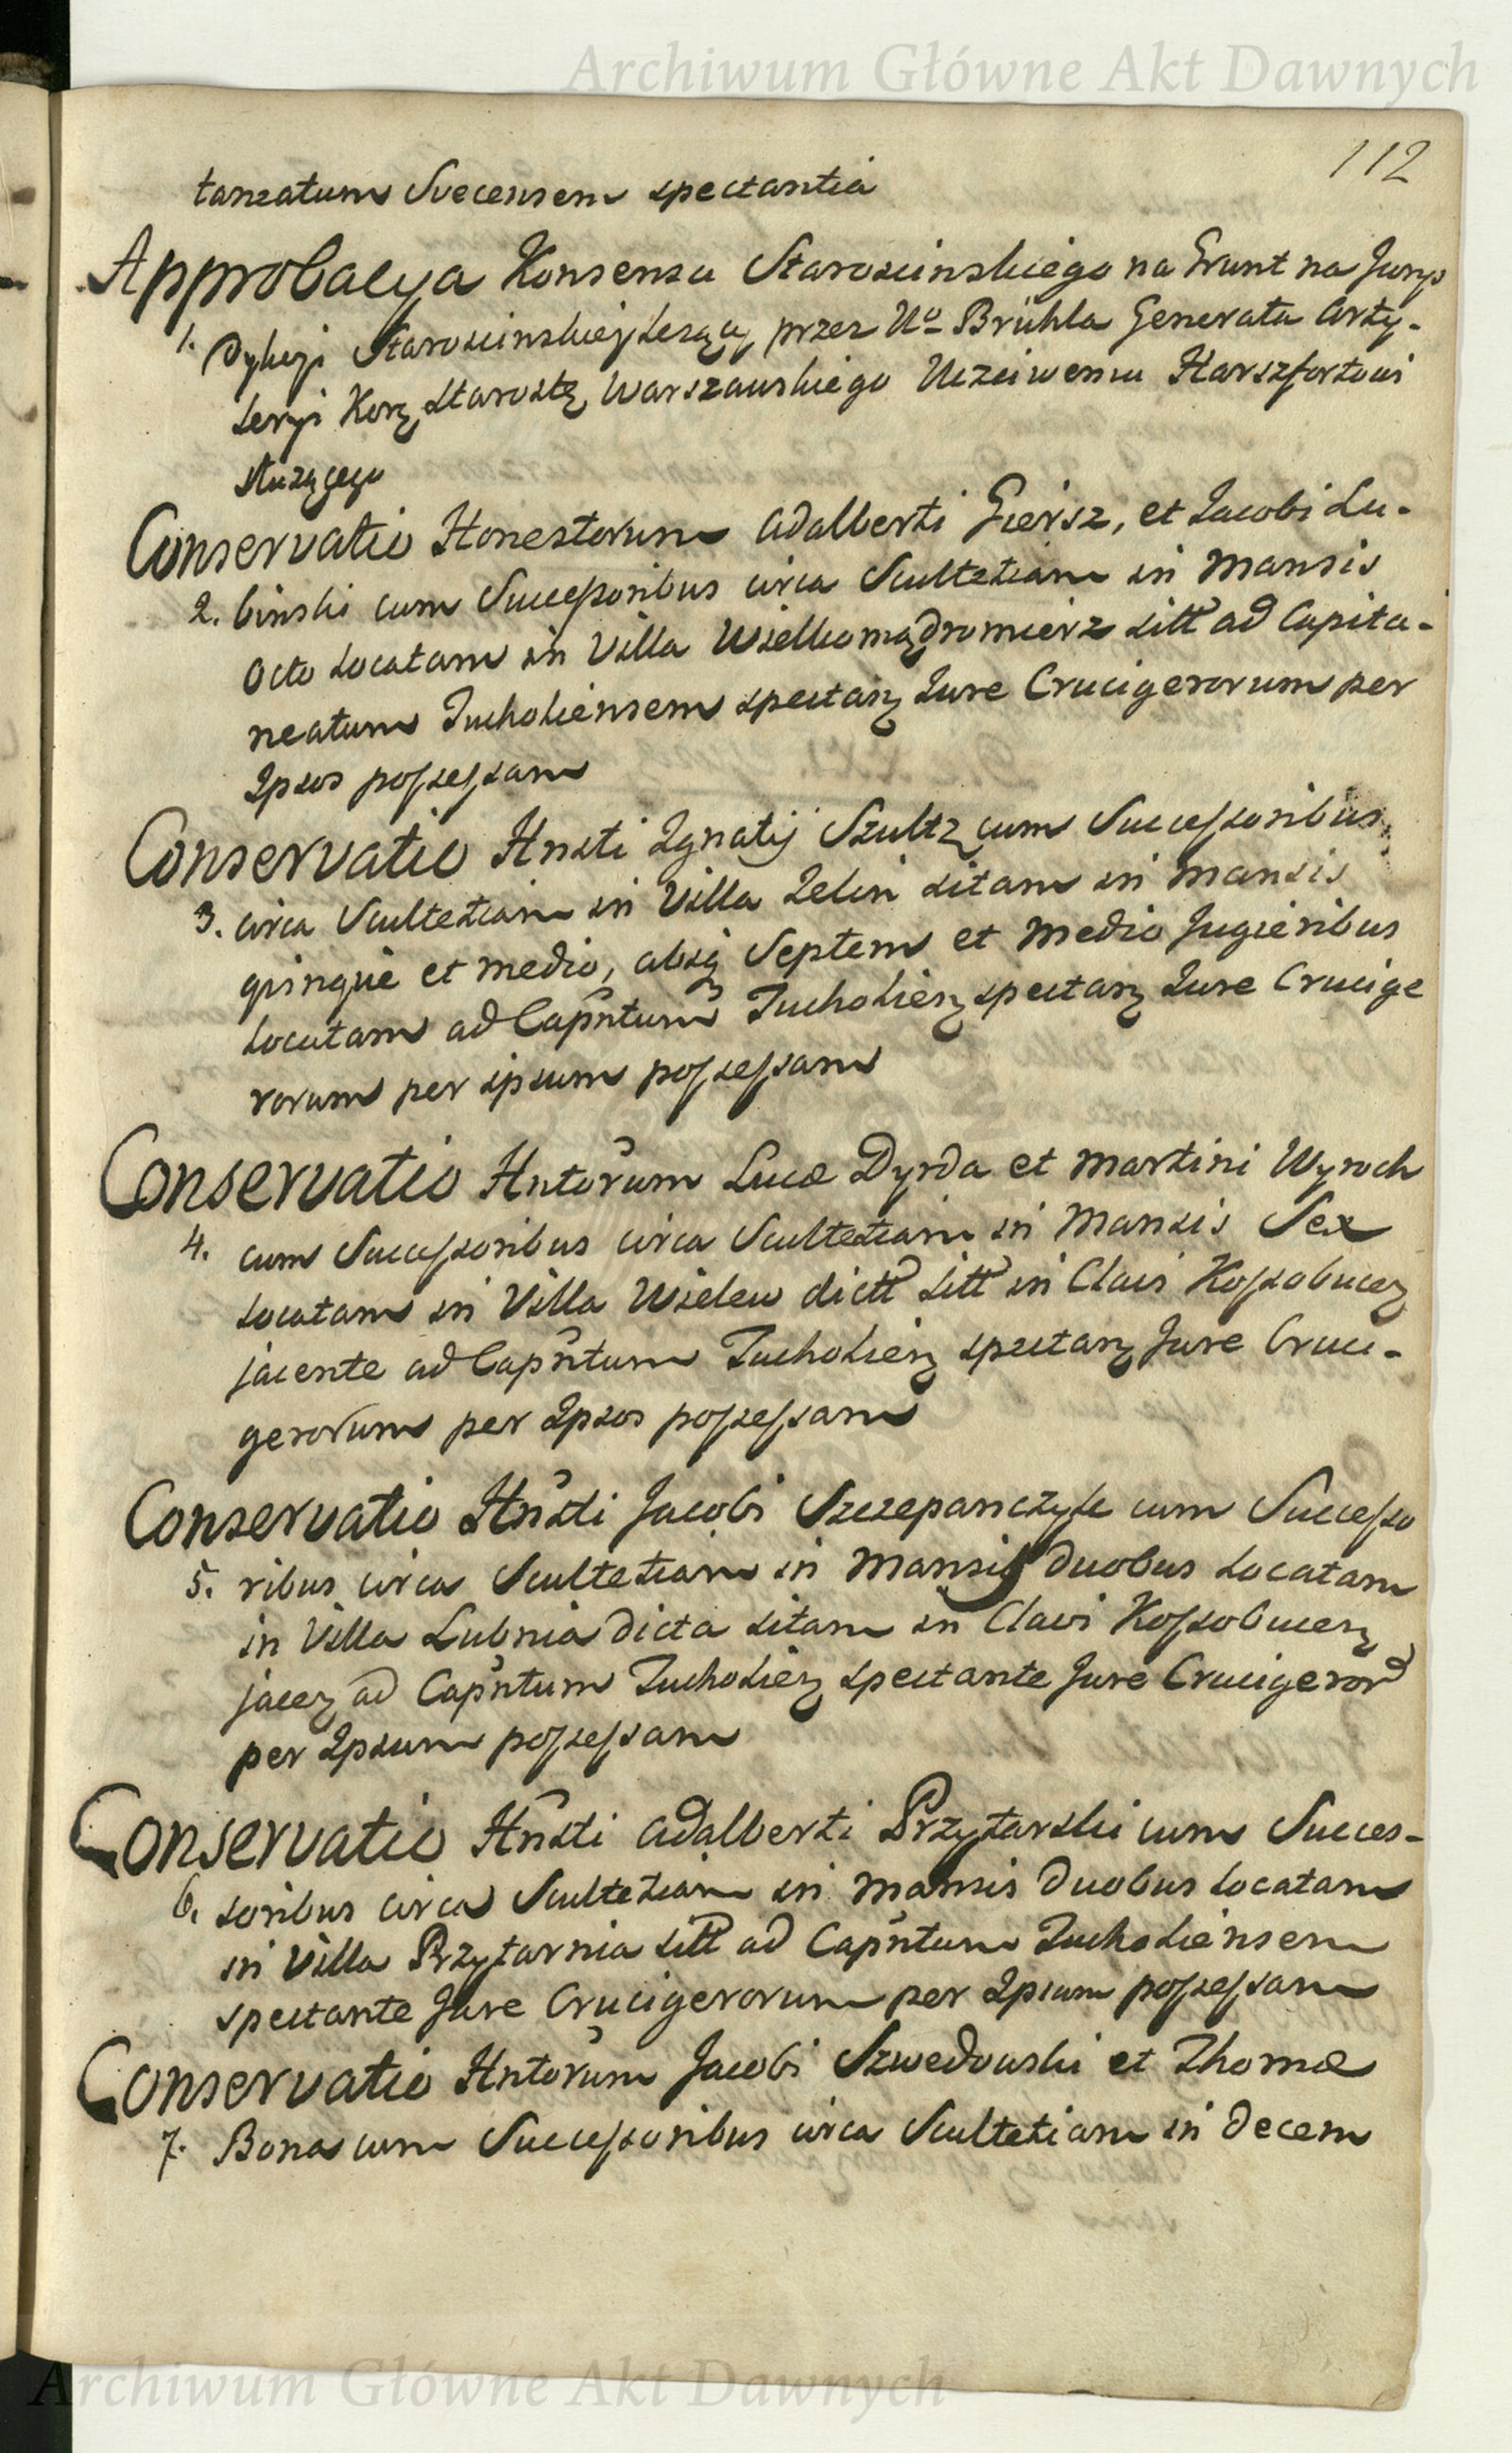 Archiwum Główne Akt Dawnych
112
taneatum Svecensem spectantia
Approbacya Konsensu Staroscinskiego na Grunt na Jurys
1. dykcyi Staroscinskiey Lezący, przez Uo Brühla Generała Arty-
leryi Korz Starostę Warszawskiego Uczciwemu Harszfortowi
służącego
Conservatio Honestorum Adalberti Giersz, et Jacobi Lu-
2. binski cum Successoribus circa Scultetiam in Mansis
octo Locatam in Villa Wielkomądromierz sitt ad Capita-
neatum Tucholiensem spectanz Jure Crucigerorum per
Ipsos possessam
Conservatio Hnsti Ignatij Szultz cum Successoribus
3. circa Scultetiam in Villa Zelin sitam in Mansis
quinque et medio, absq Septem et medio Jugieribus
Locatam ad Capntum Tucholienz spectanz Jure Crucige
rorum per ipsum possessam
Conservatio Hntorum Lucæ Dyrda et Martini Wyroch
4. cum Successoribus circa Scultetiam in Mansis Sex
Locatam in Villa Wielew dictt sitt in Clavi Kossobucz
jacente ad Capntum Tucholienz spectanz Jure Cruci-
gerorum per Ipsos possessam
Conservatio Hnsti Jacobi Szczepanczyk cum Successo
5. ribus circa Scultetiam in Mansis duobus Locatam
in Villa Lubnia dicta sitam in Clavi Kossobucenz
jacez ad Capntum Tucholienz spectante Jure Crucigeror
per Ipsum possessam
Conservatio Hnsti Adalberti Przytarski cum Succes-
6. soribus circa Scultetiam in Mansis duobus Locatam
in Villa Przytarnia sitt ad Capntum Tucholiensem
spectante Jure Crucigerorum per Ipsum possessam
Conservatio Hntorum Jacobi Szwedowski et Thomæ
7. Bona cum Successoribus circa Scultetiam in decem
Archiwum Główne Akt Dawnych